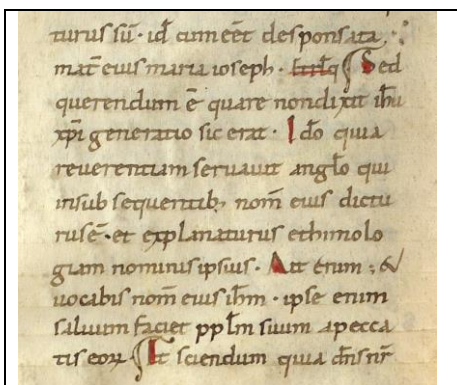 turus sū · id̄ cum eēt desponsata
mat̄ eius maria ioseph · Sed
querendum ē quare non dixit ih̄u
xp̄i generatio sic erat · Ido̅ quia
reuerentiam seruauit angl̄o qui
in subsequentib; nom̄ eius dictu
rus ē · et explanaturus ethimolo
giam nominis ipsius · Ait enim : &
uocabis nom̄ eius ih̄m · ipse enim
saluum faciet pp̄lm suum a pecca
tis eoꝝ sciendum quia dn̄s nr̄